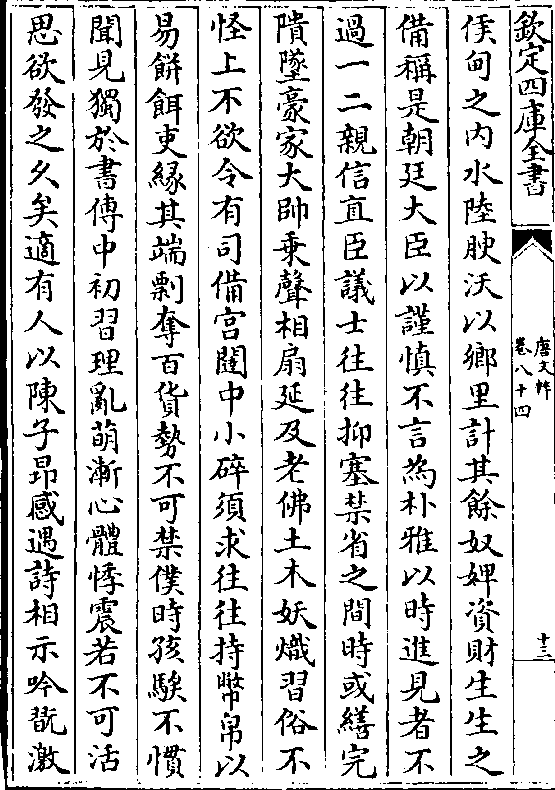 欽定四庫全書
唐文粹
卷八十四
十三
侯甸之内水陸腴沃以鄉里計其餘奴婢資財生生之
備稱是朝廷大臣以謹慎不言為朴雅以時進見者不
過一二親信直臣議士往往抑塞禁省之間時或繕完
隤墜豪家大帥乗聲相扇延及老佛土木妖熾習俗不
怪上不欲令有司備宫闥中小碎須求往往持幣帛以
易餅餌吏緣其端剽奪百貨勢不可禁僕時孩騃不慣
聞見獨於書傳中初習理亂萌漸心體悸震若不可活
思欲發之久矣適有人以陳子昂感遇詩相示吟翫激